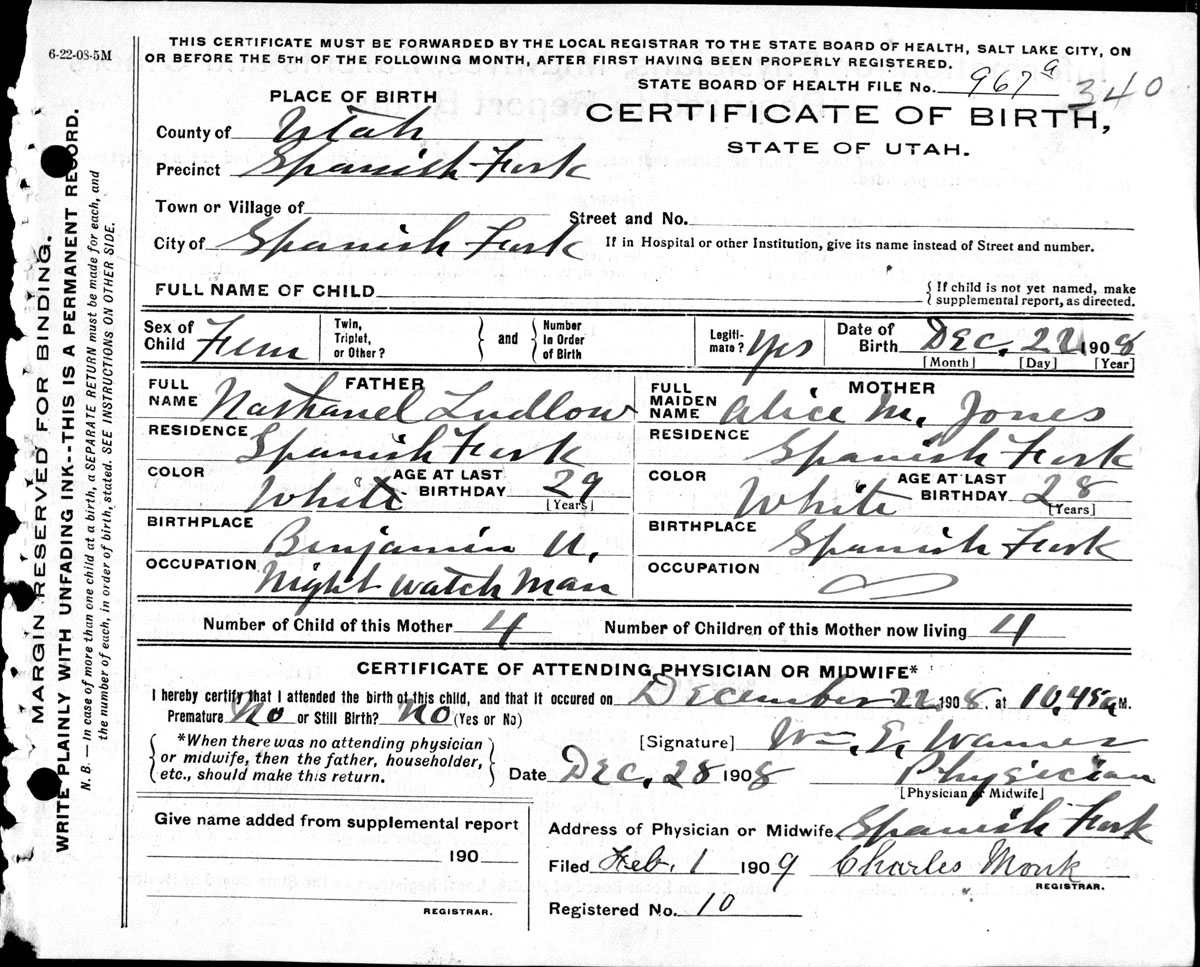 6-22-08-5M
THIS CERTIFICATE MUST BE FORWARDED BY THE LOCAL REGISTRAR TO THE STATE BOARD OF HEALTH, SALT LAKE CITY, ON
OR BEFORE THE 5TH OF THE FOLLOWING MONTH, AFTER FIRST HAVING BEEN PROPERLY REGISTERED.
STATE BOARD OF HEALTH FILE No. 967 a 340
PLACE OF BIRTH
CERTIFICATE OF BIRTH,
STATE OF UTAH.
County of Utah
Precinct Spanish Fork
Town or Village of Street and No.
City of Spanish Fork If in Hospital or other Institution, give its name instead of Street and number.
FULL NAME OF CHILD { If child is not yet named, make supplemental report, as directed.
Sex of Child Fem Twin, Triplet, or Other? } and { Number In Order of Birth Legiti-mate? Yes Date of Birth Dec. 22 1908
[Month] [Day] [Year]
FATHER MOTHER
FULL NAME Nathanel Ludlow FULL MAIDEN NAME Alice M. Jones
RESIDENCE Spanish Fork RESIDENCE Spanish Fork
COLOR White AGE AT LAST BIRTHDAY 29 [Years] COLOR White AGE AT LAST BIRTHDAY 28 [Years]
BIRTHPLACE Benjamin U. BIRTHPLACE Spanish Fork
OCCUPATION Night Watch Man OCCUPATION
Number of Child of this Mother 4 Number of Children of this Mother now living 4
CERTIFICATE OF ATTENDING PHYSICIAN OR MIDWIFE*
I hereby certify that I attended the birth of this child, and that it occured on December 22 1908, at 10,45 a M.
Premature No or Still Birth? No (Yes or No)
{ *When there was no attending physician or midwife, then the father, householder, etc., should make this return. }
[Signature] Wm. E. Warner
Date Dec. 28 1908 Physician
[Physician or Midwife]
Give name added from supplemental report
190
REGISTRAR.
Address of Physician or Midwife Spanish Fork
Filed Feb. 1 1909 Charles Monk
REGISTRAR.
Registered No. 10
MARGIN RESERVED FOR BINDING.
WRITE PLAINLY WITH UNFADING INK--THIS IS A PERMANENT RECORD.
N. B. — In case of more than one child at a birth, a SEPARATE RETURN must be made for each, and
the number of each, in order of birth, stated. SEE INSTRUCTIONS ON OTHER SIDE.